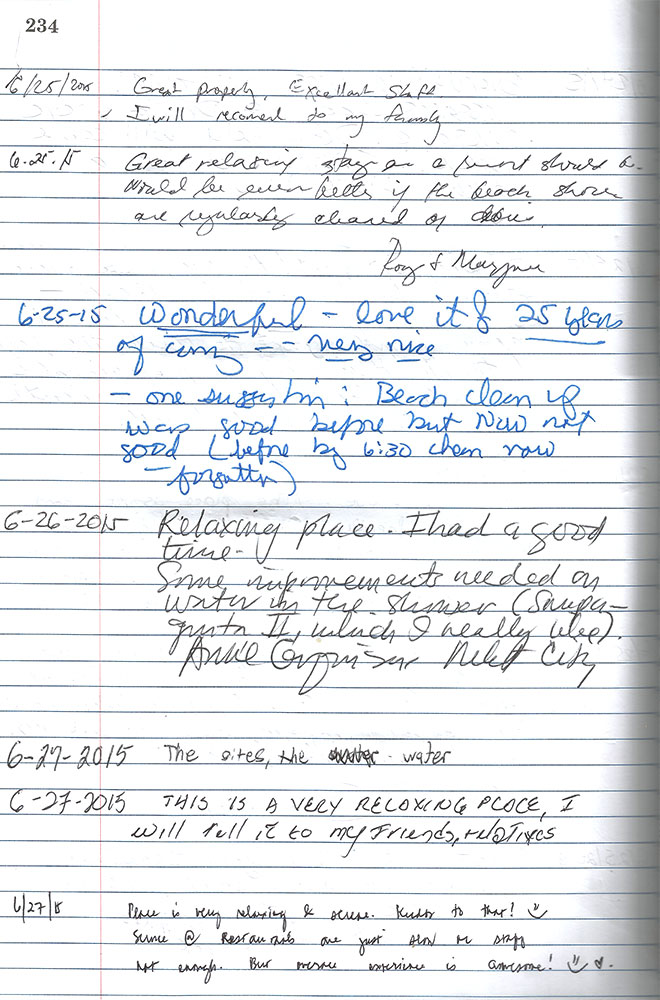 234
6/25/2015 Great property, Excellant Staff
I will recomend to my family
6.25.15 Great relaxing stay
Would be even better if the beach shores
are regularly cleaned of
Roy &
6-25-15 Wonderful – love it & 25 years
of coming – – very nice
– one suggestion : Beach clean up
was good before but Now not
good (before by 6:30 clean now
– forgotten)
6-26-2015 Relaxing place. I had a good
time.
Some improvements needed on
water in the shower (Sampa-
guita II, which I really like).
City
6-27-2015 The sites, the water
6-27-2015 THIS IS A VERY RELAXING PLACE, I
will tell it to my Friends, relatives
6/27/15 Place is very relaxing & serene. Kudos to that!
Service @ Restaurants are just slow or staff
not enough. But overall experience is awesome!